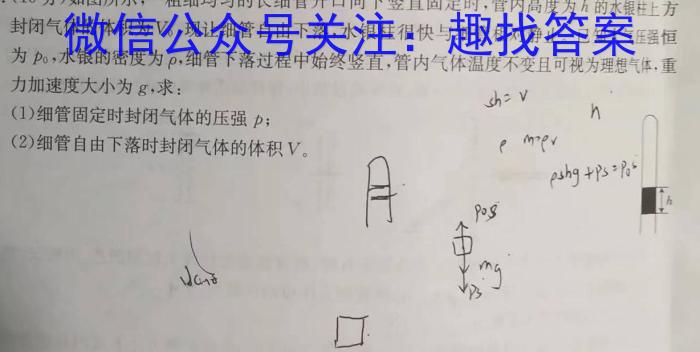 如图所示,一粗细均匀的长细管开口向下竖直固定时,管内高度为h的水银柱上方
封闭气体的体积为V₀,现让细管自由下落,水银柱很快与
压强恒
微信公众号关注:趣找答案
为p₀,水银的密度为ρ,细管下落过程中始终竖直,管内气体温度不变且可视为理想气体,重
力加速度大小为g,求:
(1)细管固定时封闭气体的压强p;
(2)细管自由下落时封闭气体的体积V。
sh=V
h
ρ m=ρv
ρshg+ps=p₀s
h
p₀s
mg
ps